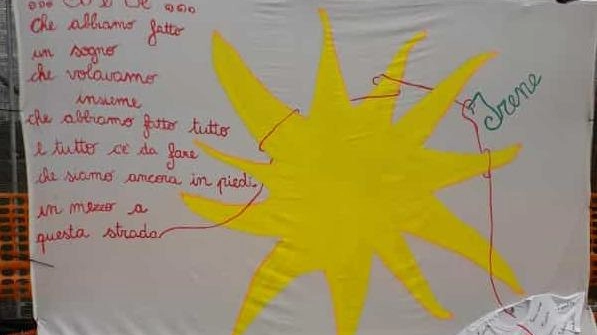 che abbiamo fatto
un sogno
che volavamo
insieme
che abbiamo fatto tutto
e tutto c'è da fare
che siamo ancora in piedi
in mezzo a
questa strada
Irene